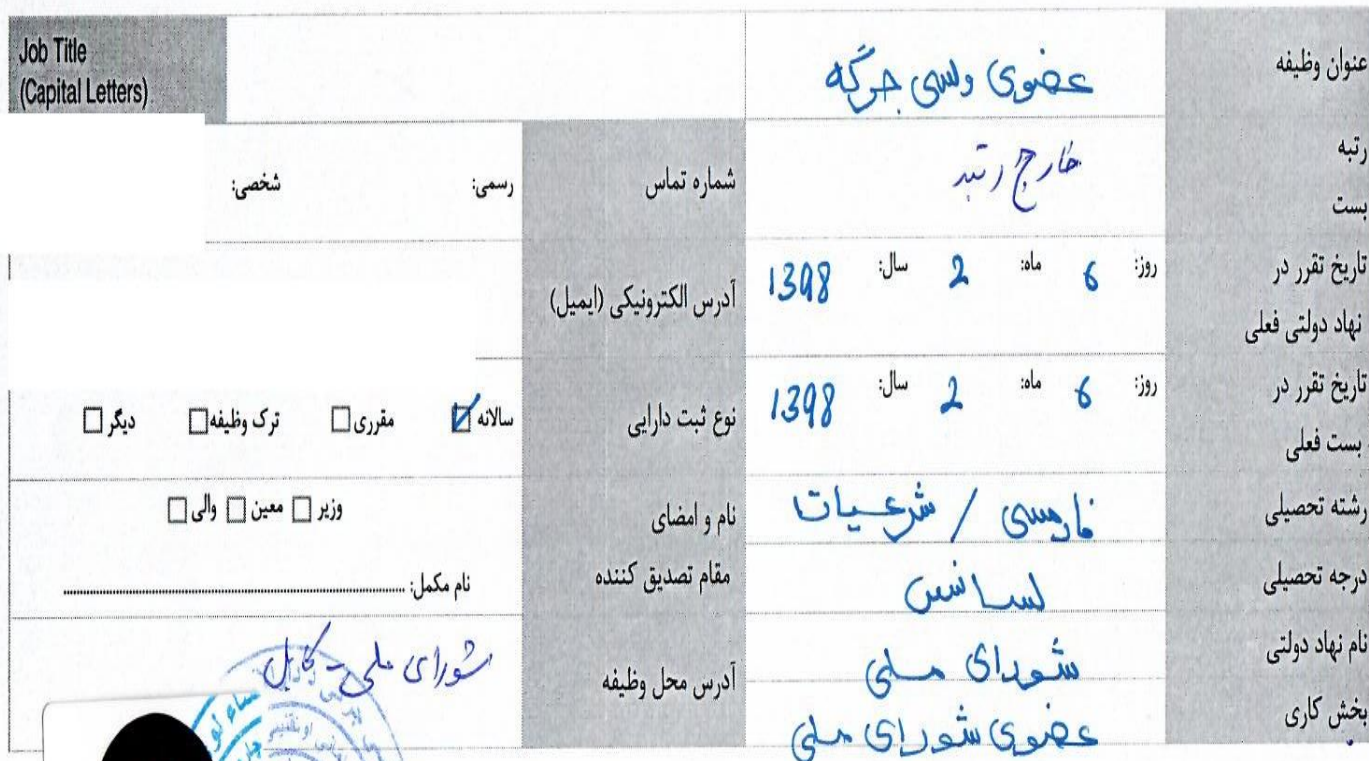 Job Title
(Capital Letters)
عنوان وظیفه
عضوی ولسی جرگه
رتبه
بست
خارج رتبه
شماره تماس
رسمی: شخصی:
تاریخ تقرر در
نهاد دولتی فعلی
روز: 6 ماه: 2 سال: 1398
آدرس الکترونیکی (ایمیل)
تاریخ تقرر در
بست فعلی
روز: 6 ماه: 2 سال: 1398
نوع ثبت دارایی
سالانه ☑ مقرری ☐ ترک وظیفه ☐ دیگر ☐
رشته تحصیلی
فارسی / شرعیات
نام و امضای
مقام تصدیق کننده
وزیر ☐ معین ☐ والی ☐
نام مکمل:
درجه تحصیلی
لسانس
نام نهاد دولتی
شورای ملی
آدرس محل وظیفه
شورای ملی - کابل
بخش کاری
عضوی شورای ملی